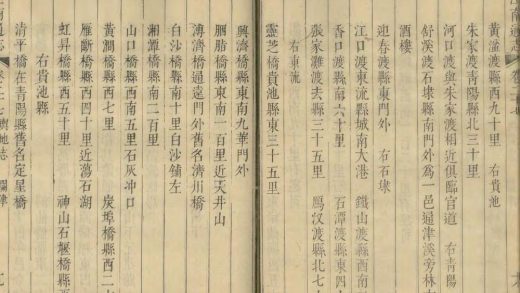 黃盆渡縣西九十里　右貴池
朱家渡青陽縣北三十里
河口渡與朱家渡相近俱臨官道　右青陽
舒溪渡石埭縣南門外為一邑通津溪旁林
酒樓
迎春渡縣東門外　右石埭
江口渡東流縣城南大港　鐵山渡縣西南
香口渡縣南六十里　石潭渡縣東四
張家灘渡去縣三十五里　渡縣北七
右東流
靈芝橋貴池縣東三十五里
興濟橋縣東南九華門外
胭脂橋縣東南一百里近天井山
溥濟橋通遠門外舊名濟川橋
白沙橋縣南十里白沙舖左
湘潭橋縣南二百里
山口橋縣西南五里石灰冲口
黃澗橋縣西七里　炭埠橋縣西二
雁斷橋縣西四十里近蕩石湖
虹昇橋縣西五十里　神山石堰橋縣
右貴池縣
清平橋在青陽縣舊名定星橋
南通志